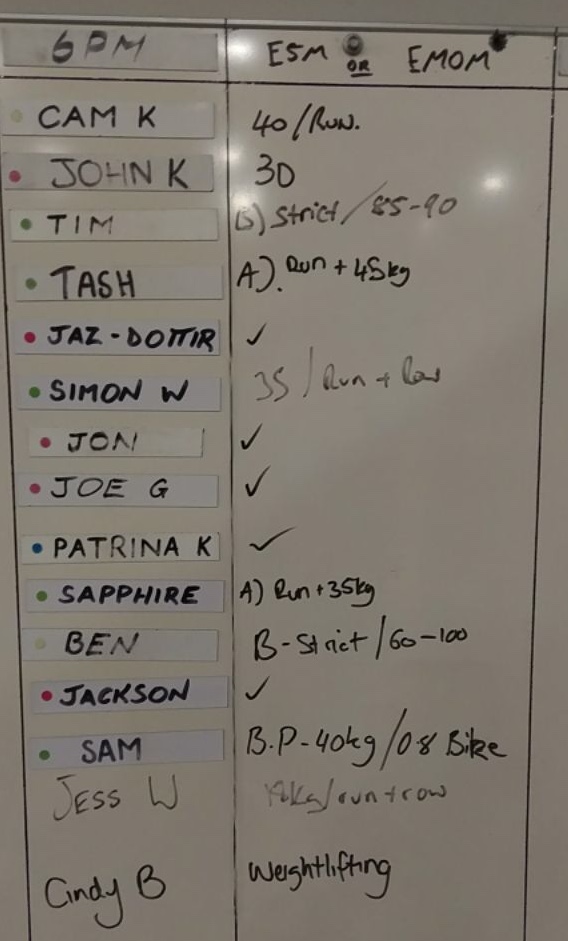 6PM E5M OR EMOM
CAM K 40/RUN.
JOHN K 30
TIM B) Strict/85-90
TASH A). Run + 45kg
JAZ-DOTTIR ✓
SIMON W 35/Run + Row
JON ✓
JOE G ✓
PATRINA K ✓
SAPPHIRE A) Run + 35kg
BEN B-Strict/60-100
JACKSON ✓
SAM B.P-40kg/0.8 Bike
JESS W /run+row
Cindy B Weightlifting